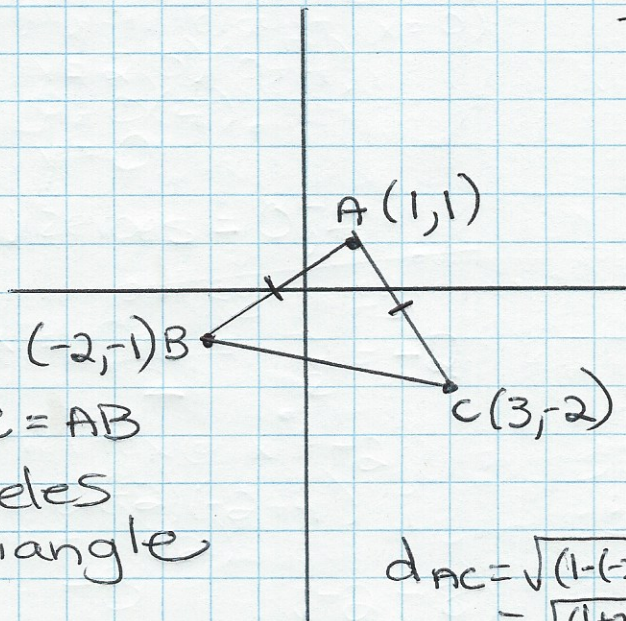 A (1,1)
(-2,-1) B
C (3,-2)
= AB
eles
iangle
dAC = √(1-(-
= √(1+